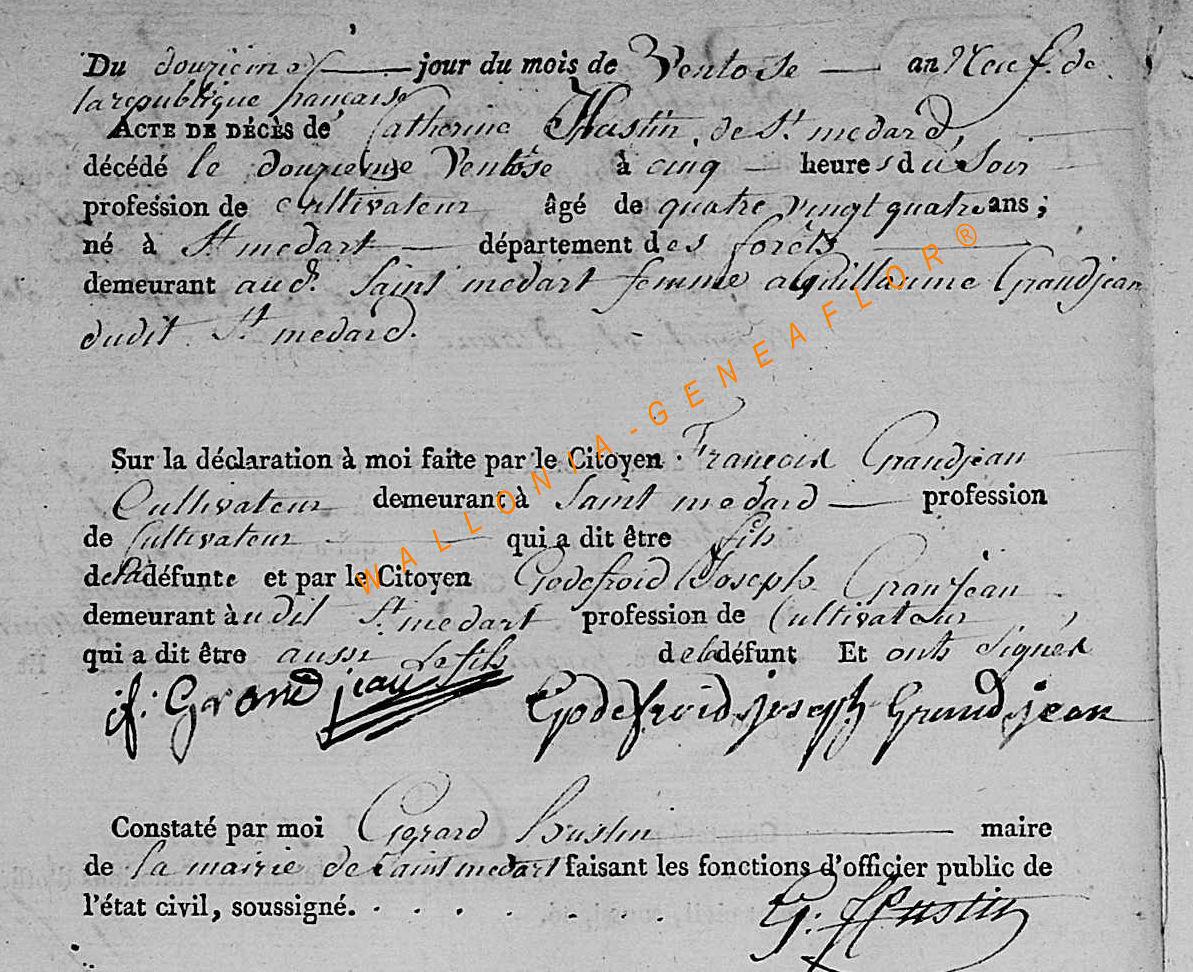 Du douzieme jour du mois de Ventose an Neuf. de
la republique francaise
ACTE DE DÉCÈS de Catherine Hustin de St medard,
décédé le douzieme Ventôse à cinq heures du soir
profession de Cultivateur âgé de quatre vingt quatre ans ;
né à St medart département des forêts
demeurant aud. Saint medart femme a Guillaume Grandjean
dudit St medard.
Sur la déclaration à moi faite par le Citoyen Francois Grandjean
Cultivateur demeurant à Saint medard profession
de Cultivateur qui a dit être fils
de la défunte et par le Citoyen Godefroid Joseph Granjean
demeurant à udit St medart profession de Cultivateur
qui a dit être aussi le fils de la défunt Et onts signés
f. Grandjean Godefroid joseph Grandjean
Constaté par moi Gerard hustin maire
de la mairie de Saint medart faisant les fonctions d'officier public de
l'état civil, soussigné. . . . . . . .
G. Hustin
WALLONIA-GENEAFLOR®